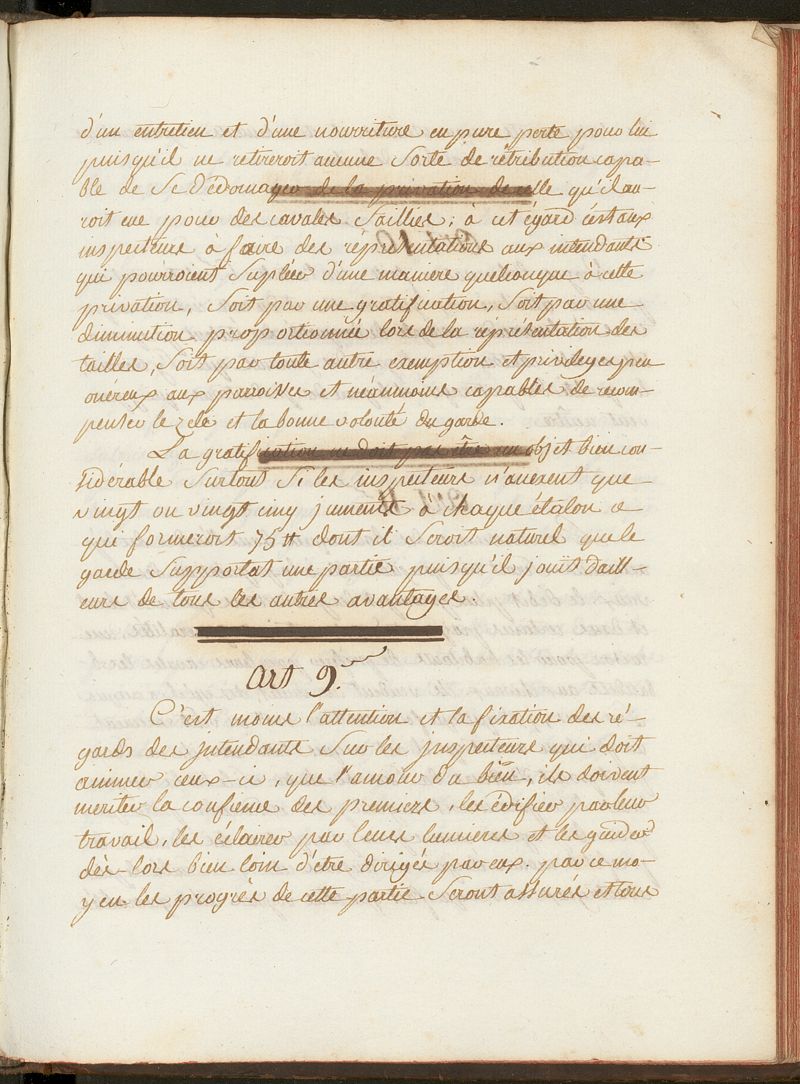 d'un entretien et d'une nourriture en pure perte pour lui
puisqu'il ne retireroit aucune sorte de rétribution capa-
ble de se dédomager de la privation de celle qu'il au-
roit eue pour des cavales saillies; à cet égard c'est aux
inspecteurs à faire des réprésentations aux intendants
qui pourroient supléer d'une maniere quelconque à cette
privation, soit par une gratification, soit par une
diminution proportionnée lors de la réprésentation des
tailles, soit par toute autre exemption et privileges peu
onéreux aux parroisses et néanmoins capables de recom-
penser le zele et la bonne volonté du garde.
La gratification ne doit pas être un objet bien con-
sidérable surtout si les inspecteurs n'anexent que
vingt ou vingt cinq juments à chaque étalon ce
qui formeroit 75 ₶ dont il seroit naturel que le
garde supportat une partie puisqu'il jouit d'aill-
eurs de tous les autres avantages.
Art 9.
C'est moins l'attention et la fixation des ré-
gards des intendants sur les inspecteurs qui doit
animer ceux-ci, que l'amour du bien, ils doivent
meriter la confience des premiers, les édifier par leur
travail, les éclairer par leurs lumieres et les guider
dès-lors bien loin d'être dirigés par eux. par ce mo-
yen les progrès de cette partie seront assurés et tous